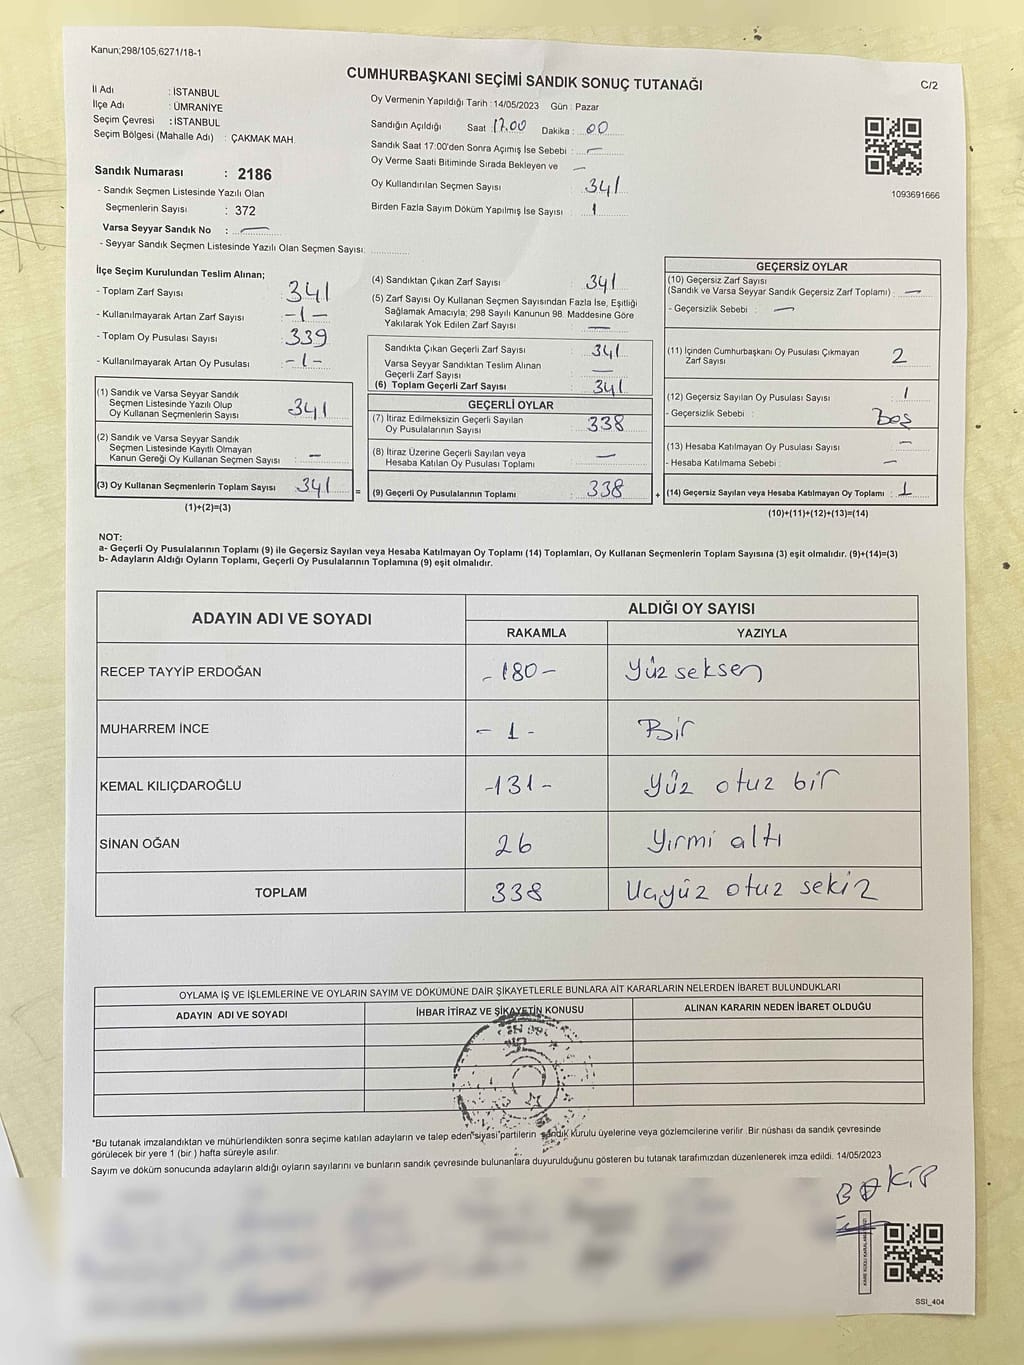 Kanun;298/105,6271/18-1
CUMHURBAŞKANI SEÇİMİ SANDIK SONUÇ TUTANAĞI
C/2
İl Adı : İSTANBUL
İlçe Adı : ÜMRANİYE
Seçim Çevresi : İSTANBUL
Seçim Bölgesi (Mahalle Adı) : ÇAKMAK MAH.
Oy Vermenin Yapıldığı Tarih : 14/05/2023 Gün : Pazar
Sandığın Açıldığı Saat : 17.00 Dakika : 00
Sandık Saat 17:00'den Sonra Açımış İse Sebebi : —
Oy Verme Saati Bitiminde Sırada Bekleyen ve —
Oy Kullandırılan Seçmen Sayısı : 341
Birden Fazla Sayım Döküm Yapılmış İse Sayısı : 1
1093691666
Sandık Numarası : 2186
- Sandık Seçmen Listesinde Yazılı Olan
Seçmenlerin Sayısı : 372
Varsa Seyyar Sandık No : —
- Seyyar Sandık Seçmen Listesinde Yazılı Olan Seçmen Sayısı:
İlçe Seçim Kurulundan Teslim Alınan;
- Toplam Zarf Sayısı : 341
- Kullanılmayarak Artan Zarf Sayısı : -1-
- Toplam Oy Pusulası Sayısı : 339
- Kullanılmayarak Artan Oy Pusulası : -1-
(1) Sandık ve Varsa Seyyar Sandık
Seçmen Listesinde Yazılı Olup
Oy Kullanan Seçmenlerin Sayısı : 341
(2) Sandık ve Varsa Seyyar Sandık
Seçmen Listesinde Kayıtlı Olmayan
Kanun Gereği Oy Kullanan Seçmen Sayısı : —
(3) Oy Kullanan Seçmenlerin Toplam Sayısı : 341
(1)+(2)=(3)
=
(4) Sandıktan Çıkan Zarf Sayısı : 341
(5) Zarf Sayısı Oy Kullanan Seçmen Sayısından Fazla İse, Eşitliği
Sağlamak Amacıyla; 298 Sayılı Kanunun 98. Maddesine Göre
Yakılarak Yok Edilen Zarf Sayısı : —
Sandıkta Çıkan Geçerli Zarf Sayısı : 341
Varsa Seyyar Sandıktan Teslim Alınan
Geçerli Zarf Sayısı : —
(6) Toplam Geçerli Zarf Sayısı : 341
GEÇERLİ OYLAR
(7) İtiraz Edilmeksizin Geçerli Sayılan
Oy Pusulalarının Sayısı : 338
(8) İtiraz Üzerine Geçerli Sayılan veya
Hesaba Katılan Oy Pusulası Toplamı : —
(9) Geçerli Oy Pusulalarının Toplamı : 338
+
GEÇERSİZ OYLAR
(10) Geçersiz Zarf Sayısı
(Sandık ve Varsa Seyyar Sandık Geçersiz Zarf Toplamı) : —
- Geçersizlik Sebebi : —
(11) İçinden Cumhurbaşkanı Oy Pusulası Çıkmayan
Zarf Sayısı : 2
(12) Geçersiz Sayılan Oy Pusulası Sayısı : 1
- Geçersizlik Sebebi : Boş
(13) Hesaba Katılmayan Oy Pusulası Sayısı : —
- Hesaba Katılmama Sebebi : —
(14) Geçersiz Sayılan veya Hesaba Katılmayan Oy Toplamı : 1
(10)+(11)+(12)+(13)=(14)
NOT:
a- Geçerli Oy Pusulalarının Toplamı (9) ile Geçersiz Sayılan veya Hesaba Katılmayan Oy Toplamı (14) Toplamları, Oy Kullanan Seçmenlerin Toplam Sayısına (3) eşit olmalıdır. (9)+(14)=(3)
b- Adayların Aldığı Oyların Toplamı, Geçerli Oy Pusulalarının Toplamına (9) eşit olmalıdır.
ADAYIN ADI VE SOYADI
ALDIĞI OY SAYISI
RAKAMLA YAZIYLA
RECEP TAYYİP ERDOĞAN -180- Yüz seksen
MUHARREM İNCE -1- Bir
KEMAL KILIÇDAROĞLU -131- Yüz otuz bir
SİNAN OĞAN 26 Yirmi altı
TOPLAM 338 Üçyüz otuz sekiz
OYLAMA İŞ VE İŞLEMLERİNE VE OYLARIN SAYIM VE DÖKÜMÜNE DAİR ŞİKAYETLERLE BUNLARA AİT KARARLARIN NELERDEN İBARET BULUNDUKLARI
ADAYIN ADI VE SOYADI İHBAR İTİRAZ VE ŞİKAYETİN KONUSU ALINAN KARARIN NEDEN İBARET OLDUĞU
*Bu tutanak imzalandıktan ve mühürlendikten sonra seçime katılan adayların ve talep eden siyasi partilerin sandık kurulu üyelerine veya gözlemcilerine verilir. Bir nüshası da sandık çevresinde
görülecek bir yere 1 (bir ) hafta süreyle asılır.
Sayım ve döküm sonucunda adayların aldığı oyların sayılarını ve bunların sandık çevresinde bulunanlara duyurulduğunu gösteren bu tutanak tarafımızdan düzenlenerek imza edildi. 14/05/2023
SSI_404